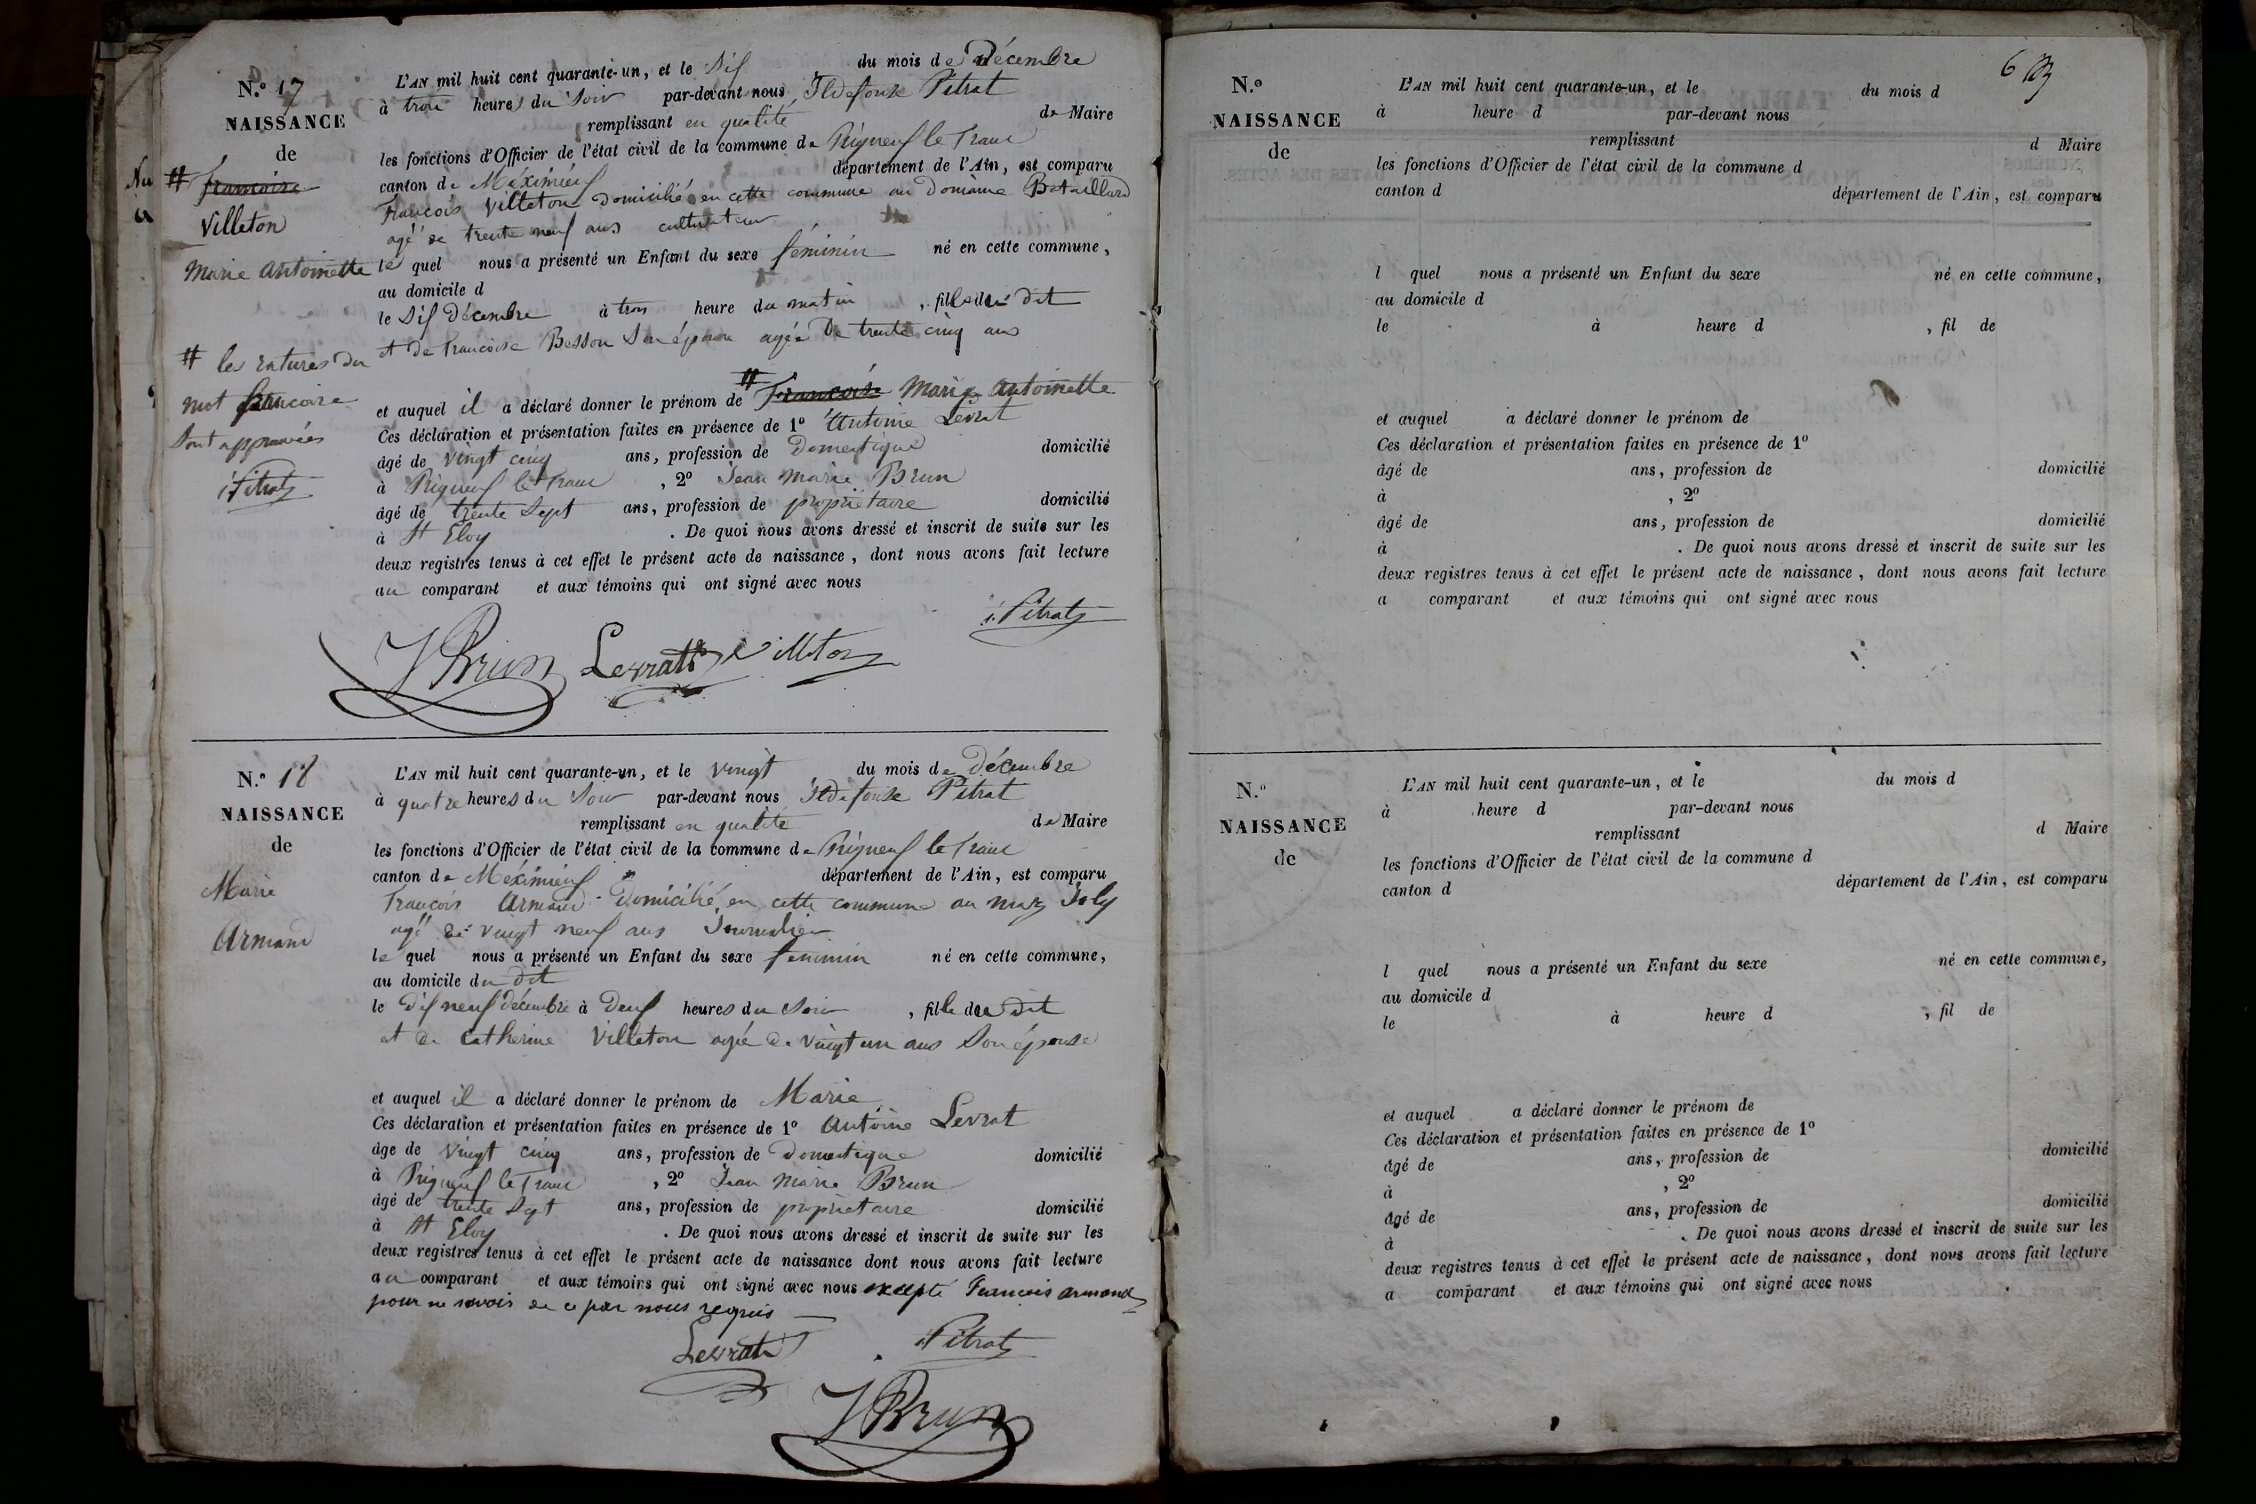 N.° 17
NAISSANCE
de
# Francoise
Villeton
Marie Antoinette
# les ratures du
mot francoise
sont approuvées
i Pitrat
L'AN mil huit cent quarante-un, et le dix du mois de Décembre
à trois heures du soir par-devant nous Ildefonse Pitrat
remplissant en qualité de Maire
les fonctions d'Officier de l'état civil de la commune de Rigneux le franc
canton de Méximieux département de l'Ain, est comparu
François Villeton domicilié en cette commune au Domaine Bataillard
agé de trente neuf ans cultivateur
le quel nous a présenté un Enfant du sexe féminin né en cette commune,
au domicile d
le dix décembre à trois heure du matin, fille du dit
et de francoise Besson son épouse agée de trente cinq ans
et auquel il a déclaré donner le prénom de # francoise Marie antoinette
Ces déclaration et présentation faites en présence de 1° Antoine Levrat
âgé de vingt cinq ans, profession de Domestique domicilié
à Rigneux le franc, 2° Jean Marie Brun
âgé de trente sept ans, profession de propriétaire domicilié
à St Eloy. De quoi nous avons dressé et inscrit de suite sur les
deux registres tenus à cet effet le présent acte de naissance, dont nous avons fait lecture
au comparant et aux témoins qui ont signé avec nous
i. Pitrat
J Brun Levrat Villeton
N.° 18
NAISSANCE
de
Marie
Armand
L'AN mil huit cent quarante-un, et le vingt du mois de Décembre
à quatre heures du soir par-devant nous Ildefonse Pitrat
remplissant en qualité de Maire
les fonctions d'Officier de l'état civil de la commune de Rigneux le franc
canton de Méximieux département de l'Ain, est comparu
François Armand domicilié en cette commune au mas Joly
agé de vingt neuf ans Journalier
le quel nous a présenté un Enfant du sexe feminin né en cette commune,
au domicile du dit
le dix neuf décembre à deux heures du soir, fille du dit
et de Catherine Villeton agée de vingt un ans son épouse
et auquel il a déclaré donner le prénom de Marie
Ces déclaration et présentation faites en présence de 1° Antoine Levrat
âge de vingt cinq ans, profession de Domestique domicilié
à Rigneux le franc, 2° Jean Marie Brun
âgé de trente sept ans, profession de propriétaire domicilié
à St Eloy. De quoi nous avons dressé et inscrit de suite sur les
deux registres tenus à cet effet le présent acte de naissance dont nous avons fait lecture
au comparant et aux témoins qui ont signé avec nous excepté Francois armand
pour ne savoir de ce par nous requis
Levrat i Pitrat
J Brun
6
N.°
NAISSANCE
de
L'AN mil huit cent quarante-un, et le du mois d
à heure d par-devant nous
remplissant d Maire
les fonctions d'Officier de l'état civil de la commune d
canton d département de l'Ain, est comparu
l quel nous a présenté un Enfant du sexe né en cette commune,
au domicile d
le à heure d, fil de
et auquel a déclaré donner le prénom de
Ces déclaration et présentation faites en présence de 1°
âgé de ans, profession de domicilié
à, 2°
âgé de ans, profession de domicilié
à. De quoi nous avons dressé et inscrit de suite sur les
deux registres tenus à cet effet le présent acte de naissance, dont nous avons fait lecture
a comparant et aux témoins qui ont signé avec nous
N.°
NAISSANCE
de
L'AN mil huit cent quarante-un, et le du mois d
à heure d par-devant nous
remplissant d Maire
les fonctions d'Officier de l'état civil de la commune d
canton d département de l'Ain, est comparu
l quel nous a présenté un Enfant du sexe né en cette commune,
au domicile d
le à heure d, fil de
et auquel a déclaré donner le prénom de
Ces déclaration et présentation faites en présence de 1°
âgé de ans, profession de domicilié
à, 2°
âgé de ans, profession de domicilié
à. De quoi nous avons dressé et inscrit de suite sur les
deux registres tenus à cet effet le présent acte de naissance, dont nous avons fait lecture
a comparant et aux témoins qui ont signé avec nous